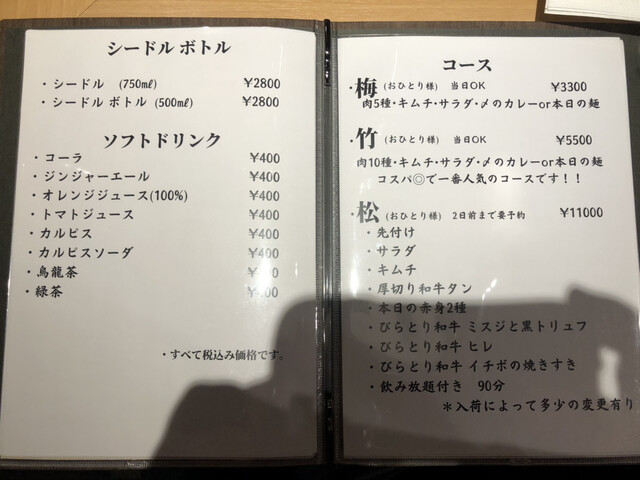 シードル ボトル
・シードル (750㎖) ¥2800
・シードル ボトル (500㎖) ¥2800
ソフトドリンク
・コーラ ¥400
・ジンジャーエール ¥400
・オレンジジュース(100%) ¥400
・トマトジュース ¥400
・カルピス ¥400
・カルピスソーダ ¥400
・烏龍茶
・緑茶
・すべて税込み価格です。
コース
・梅 (おひとり様) 当日OK ¥3300
肉5種・キムチ・サラダ・〆のカレーor本日の麺
・竹 (おひとり様) 当日OK ¥5500
肉10種・キムチ・サラダ・〆のカレーor本日の麺
コスパ◎で一番人気のコースです！！
・松 (おひとり様) 2日前まで要予約 ¥11000
・先付け
・サラダ
・キムチ
・厚切り和牛タン
・本日の赤身2種
・びらとり和牛 ミスジと黒トリュフ
・びらとり和牛 ヒレ
・びらとり和牛 イチボの焼きすき
・飲み放題付き 90分
＊入荷によって多少の変更有り